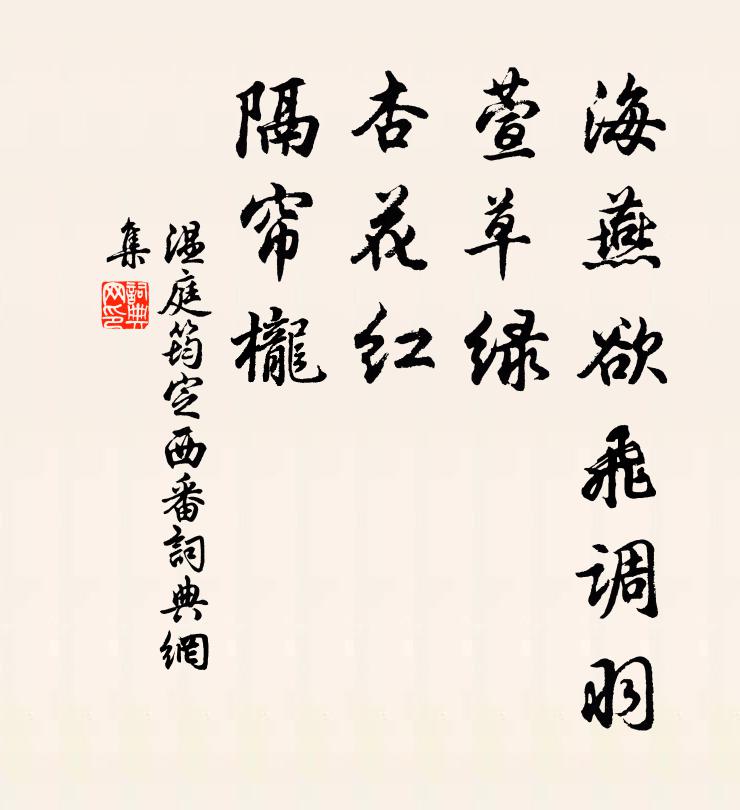 海燕欲飛调羽
萱草绿
杏花红
隔帘櫳
温庭筠定西番詞典網
集
詞典
网印